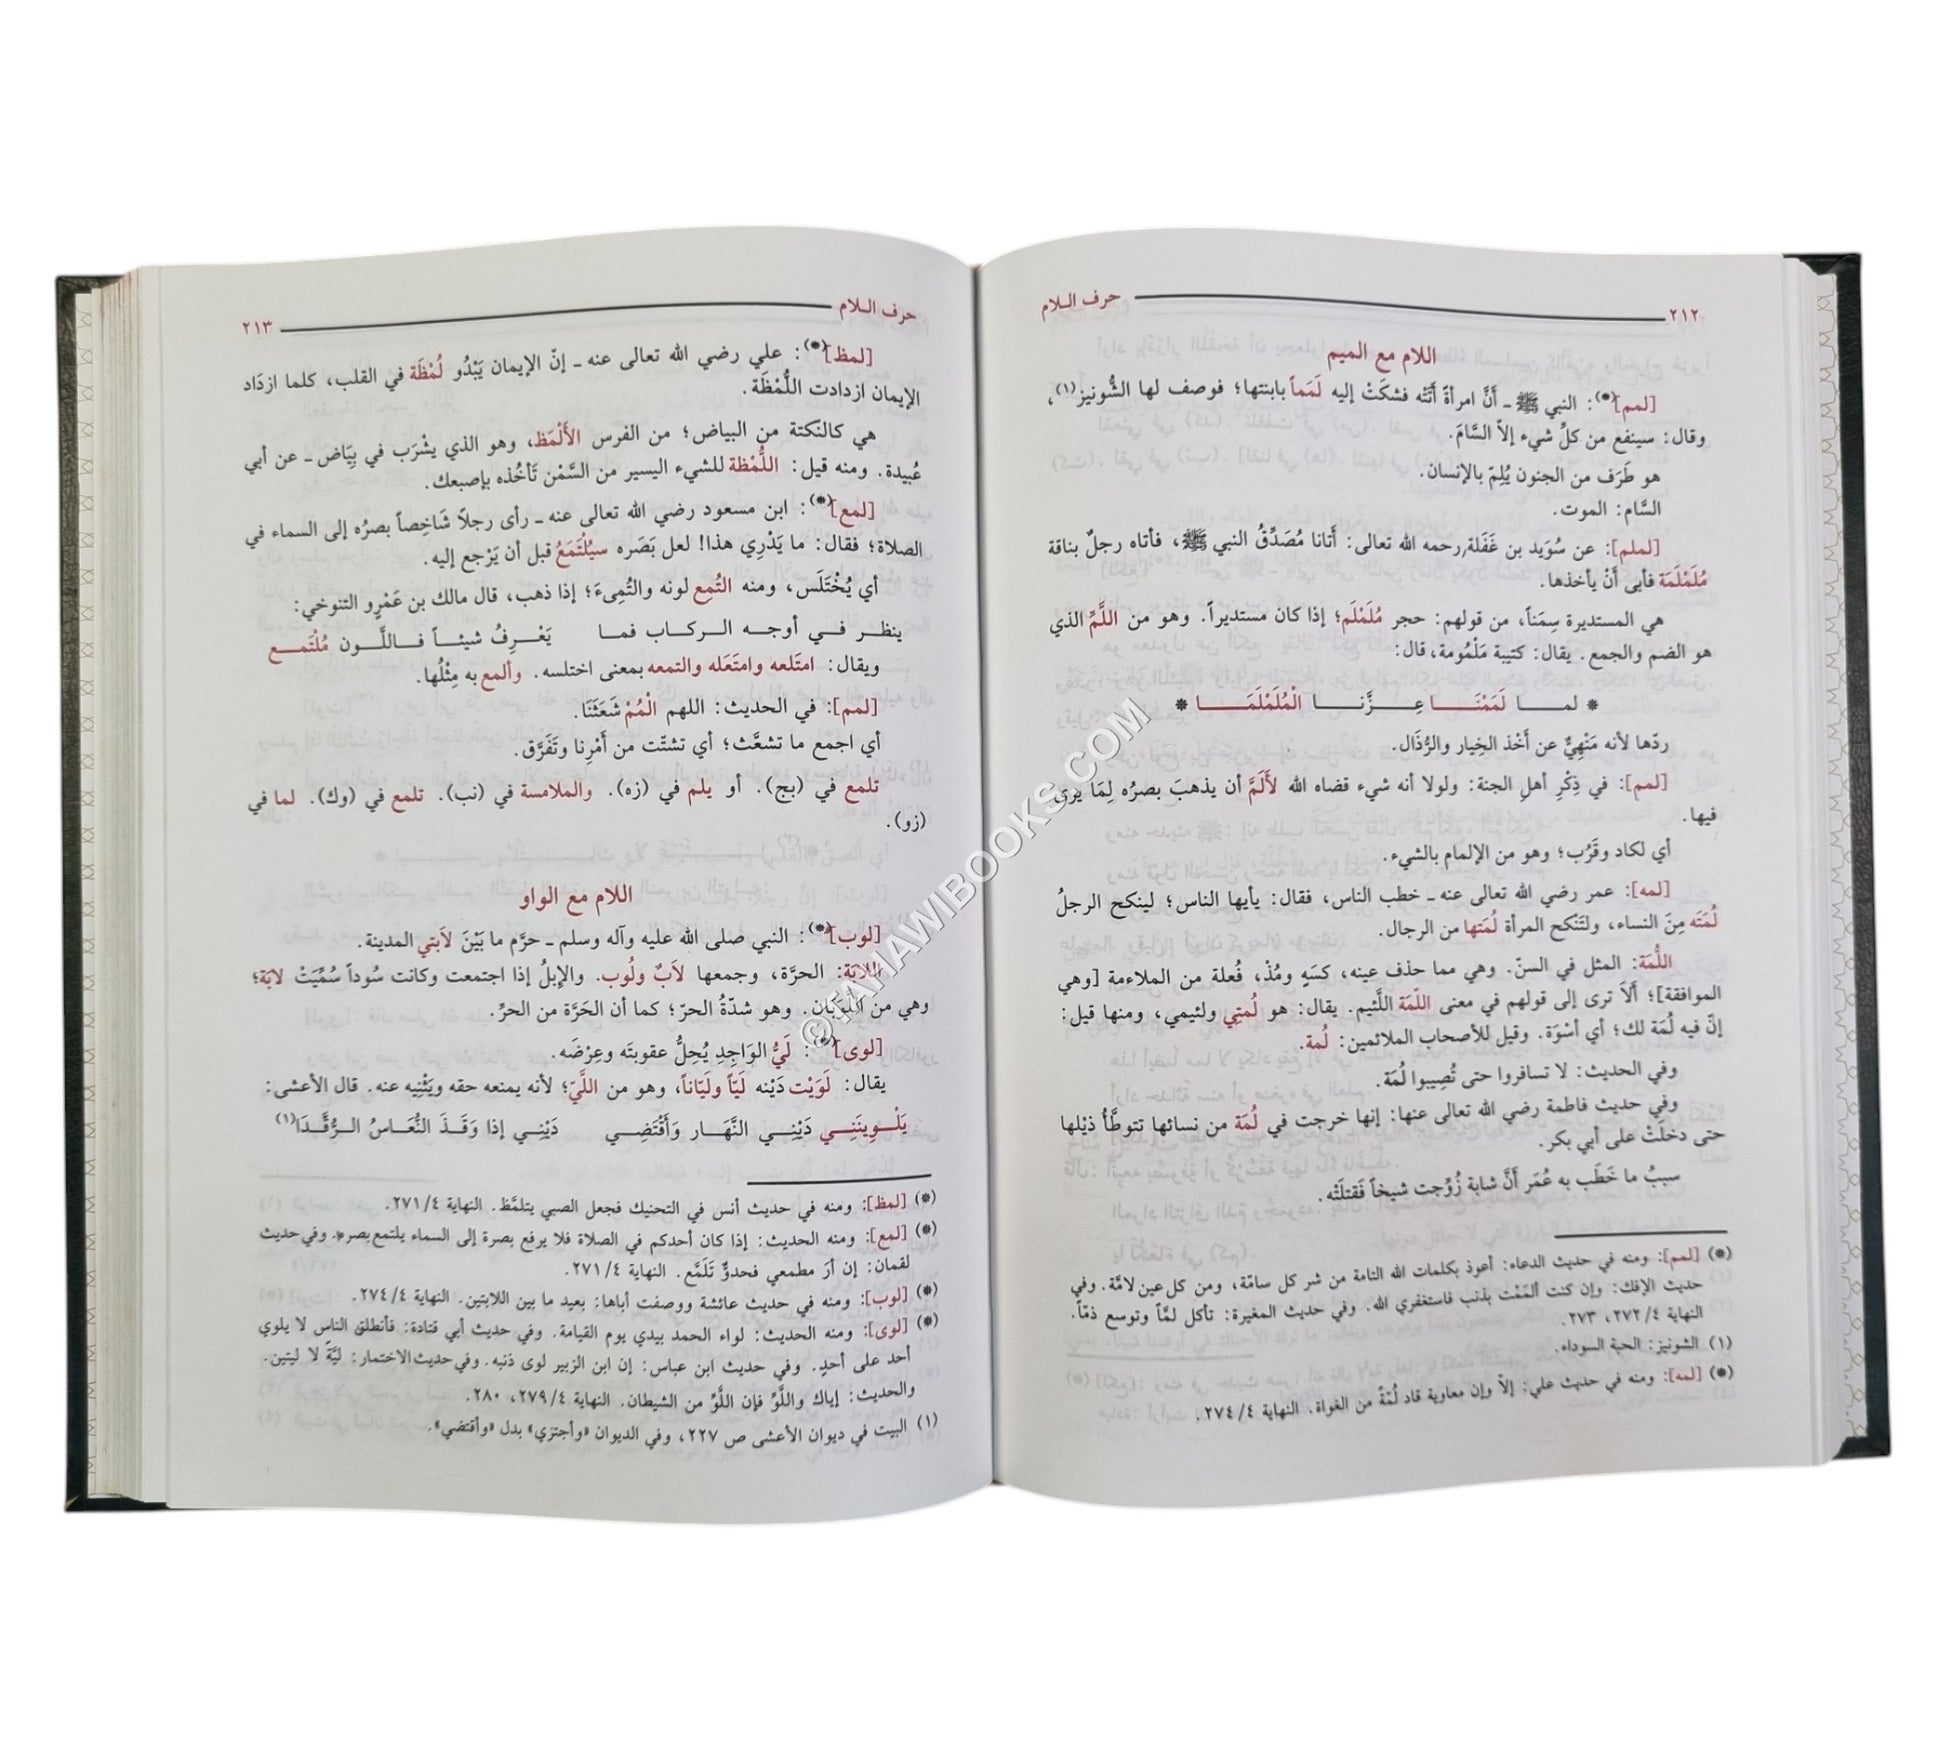 ٢١٢ حرف اللام
اللام مع الميم
[لمم](*): النبي ﷺ ـ أَنَّ امرأةً أَتَتْه فشكَتْ إليه لَمَماً بابنتها؛ فوصف لها الشُّونيز(١)،
وقال: سينفع من كلِّ شيء إلاّ السَّامَ.
هو طَرَف من الجنون يُلِمّ بالإنسان.
السَّام: الموت.
[لملم]: عن سُوَيد بن غَفَلة رحمه الله تعالى: أَتانا مُصَدِّقُ النبي ﷺ، فأتاه رجلٌ بناقة
مُلَمْلَمَة فأبى أَنْ يأخذها.
هي المستديرة سِمَناً، من قولهم: حجر مُلَمْلَم؛ إذا كان مستديراً. وهو من اللَّمّ الذي
هو الضم والجمع. يقال: كتيبة مَلْمُومة، قال:
* لمـا لَمَمْنَـا عِـزَّنـا الْمُلَمْلَمَـا *
ردّها لأنه مَنْهِيٌّ عن أَخْذ الخِيار والرُّذَال.
[لمم]: في ذِكْرِ أهلِ الجنة: ولولا أنه شيء قضاه الله لأَلَمَّ أن يذهبَ بصرُه لِمَا يرى
فيها.
أي لكاد وقَرُب؛ وهو من الإلمام بالشيء.
[لمه]: عمر رضي الله تعالى عنه ـ خطب الناس، فقال: يأيها الناس؛ لينكح الرجلُ
لُمَتَه مِنَ النساء، ولتَنْكح المرأة لُمَتها من الرجال.
اللُّمَة: المثل في السنّ. وهي مما حذف عينه، كسَهٍ ومُذْ، فُعلة من الملاءمة [وهي
الموافقة]؛ أَلاَ ترى إلى قولهم في معنى اللّمَة اللَّئيم. يقال: هو لُمتِي ولئيمي، ومنها قيل:
إنّ فيه لُمَة لك؛ أي أسْوَة. وقيل للأصحاب الملائمين: لُمة.
وفي الحديث: لا تسافروا حتى تُصِيبوا لُمَة.
وفي حديث فاطمة رضي الله تعالى عنها: إنها خرجت في لُمَة من نسائها تتوطَّأُ ذيْلها
حتى دخلَتْ على أبي بكر.
سببُ ما خَطَب به عُمَر أَنَّ شابة زُوِّجت شيخاً فَقتلَتْه.
(*) [لمم]: ومنه في حديث الدعاء: أعوذ بكلمات الله التامة من شر كل سامّة، ومن كل عين لامّة. وفي
حديث الإفك: وإن كنت ألمَمْت بذنب فاستغفري الله. وفي حديث المغيرة: تأكل لمّاً وتوسع ذمّاً.
النهاية ٢٧٢/٤، ٢٧٣.
(١) الشونيز: الحبة السوداء.
(*) [لمه]: ومنه في حديث علي: إلاّ وإن معاوية قاد لُمَةً من الغواة. النهاية ٢٧٤/٤.
حرف اللام ٢١٣
[لمظ](*): علي رضي الله تعالى عنه ـ إنّ الإيمان يَبْدُو لُمْظَة في القلب، كلما ازدَاد
الإيمان ازدادت اللُّمْظَة.
هي كالنّكتة من البياض؛ من الفرس الأَلْمَظ، وهو الذي يشْرَب في بِيَاض ـ عن أبي
عُبيدة. ومنه قيل: اللُّمْظة للشيء اليسير من السَّمْن تَأخُذه بإصبعك.
[لمع](*): ابن مسعود رضي الله تعالى عنه ـ رأى رجلاً شَاخِصاً بصرُه إلى السماء في
الصلاة؛ فقال: ما يَدْرِي هذا! لعل بَصَره سيُلْتَمَعُ قبل أن يَرْجع إليه.
أي يُخْتَلَس، ومنه التُمِع لونه والتُمِىءَ؛ إذا ذهب، قال مالك بن عَمْرٍو التنوخي:
ينظـر فـي أوجـه الـركـاب فمـا يَعْـرِفُ شيئـاً فـاللَّـون مُلْتَمـع
ويقال: امتَلعه وامتَعَله والتمعه بمعنى اختلسه. وألمع به مِثْلُها.
[لمم]: في الحديث: اللهم الْمُمْ شَعَثَنَا.
أي اجمع ما تشعَّث؛ أي تشتّت من أَمْرِنا وتَفَرَّق.
تلمع في (بج). أو يلم في (زه). والملامسة في (نب). تلمع في (وك). لما في
(زو).
اللام مع الواو
[لوب](*): النبي صلى الله عليه وآله وسلم ـ حرَّم ما بَيْنَ لاَبتي المدينة.
اللابَة: الحرَّة، وجمعها لاَبٌ ولُوب. والإبلُ إذا اجتمعت وكانت سُوداً سُمِّيَتْ لابَة؛
وهي من اللُّوبَان. وهو شدّةُ الحرّ؛ كما أن الحَرَّة من الحرِّ.
[لوى](*): لَيُّ الوَاجِدِ يُحِلُّ عقوبتَه وعِرْضَه.
يقال: لَوَيْت دَيْنه لَيّاً ولَيّاناً، وهو من اللَّيّ؛ لأنه يمنعه حقه ويَثْنِيه عنه. قال الأعشى:
يَلْـوِينَنِـي دَيْنِـي النَّهَـار وَأَقْتَضِـي دَيْنِـي إذا وَقَـذَ النُّعَـاسُ الـرُّقَّـدَا(١)
(*) [لمظ]: ومنه في حديث أنس في التحنيك فجعل الصبي يتلمَّظ. النهاية ٢٧١/٤.
(*) [لمع]: ومنه الحديث: إذا كان أحدكم في الصلاة فلا يرفع بصرة إلى السماء يلتمع بصره. وفي حديث
لقمان: إن أرَ مطمعي فحدوٌّ تَلَمَّع. النهاية ٢٧١/٤.
(*) [لوب]: ومنه في حديث عائشة ووصفت أباها: بعيد ما بين اللابتين. النهاية ٢٧٤/٤.
(*) [لوى]: ومنه الحديث: لواء الحمد بيدي يوم القيامة. وفي حديث أبي قتادة: فأنطلق الناس لا يلوي
أحد على أحدٍ. وفي حديث ابن عباس: إن ابن الزبير لوى ذنبه. وفي حديث الاختمار: ليَّةً لا ليتين.
والحديث: إياك واللَّوِّ فإن اللَّوِّ من الشيطان. النهاية ٢٧٩/٤، ٢٨٠.
(١) البيت في ديوان الأعشى ص ٢٢٧، وفي الديوان «وأجتزي» بدل «وأقتضي».